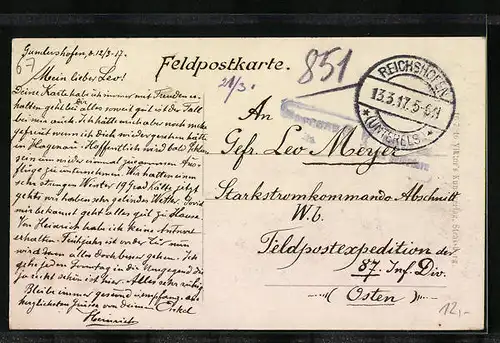 Gundershofen, d. 12/3.17.
67
Mein lieber Leo!
Deine Karte habe ich immer mit Freuden er-
halten
bei mir auch. Ich hätte mich aber noch mehr
gefreut wenn ich Dich wiedergesehen hätte
in Hagenau. Hoffentlich wird bald
sein um wieder einmal zusammen Aus-
flüge zu unternehmen. Wir hatten einen
sehr strengen Winter 19 Grad hätte jetzt
gehts wir haben sehr gelindes Wetter. Soviel
mir bekannt geht alles gut zu Hause.
Von Heinrich hab ich keine Antwort
erhalten. Frühjahr ist vor der Tür nun
wird dann alles doch besser gehen. Ich
gehe jeden Sonntag in die Umgegend die
ja recht schön ist hier. Alles sehr ruhig
Bleibe immer gesund u. empfange die
herzlichsten Grüsse von deinem Onkel
Heinrich
Feldpostkarte.
21/3.
851
REICHSHOFEN
13.3.17. 5-6N
(UNTERELS.)
An
Gefr. Leo Meyer
Starkstromkommando-Abschnitt
W.b.
Feldpostexpedition des
87. Inf. Div.
Osten
12,-